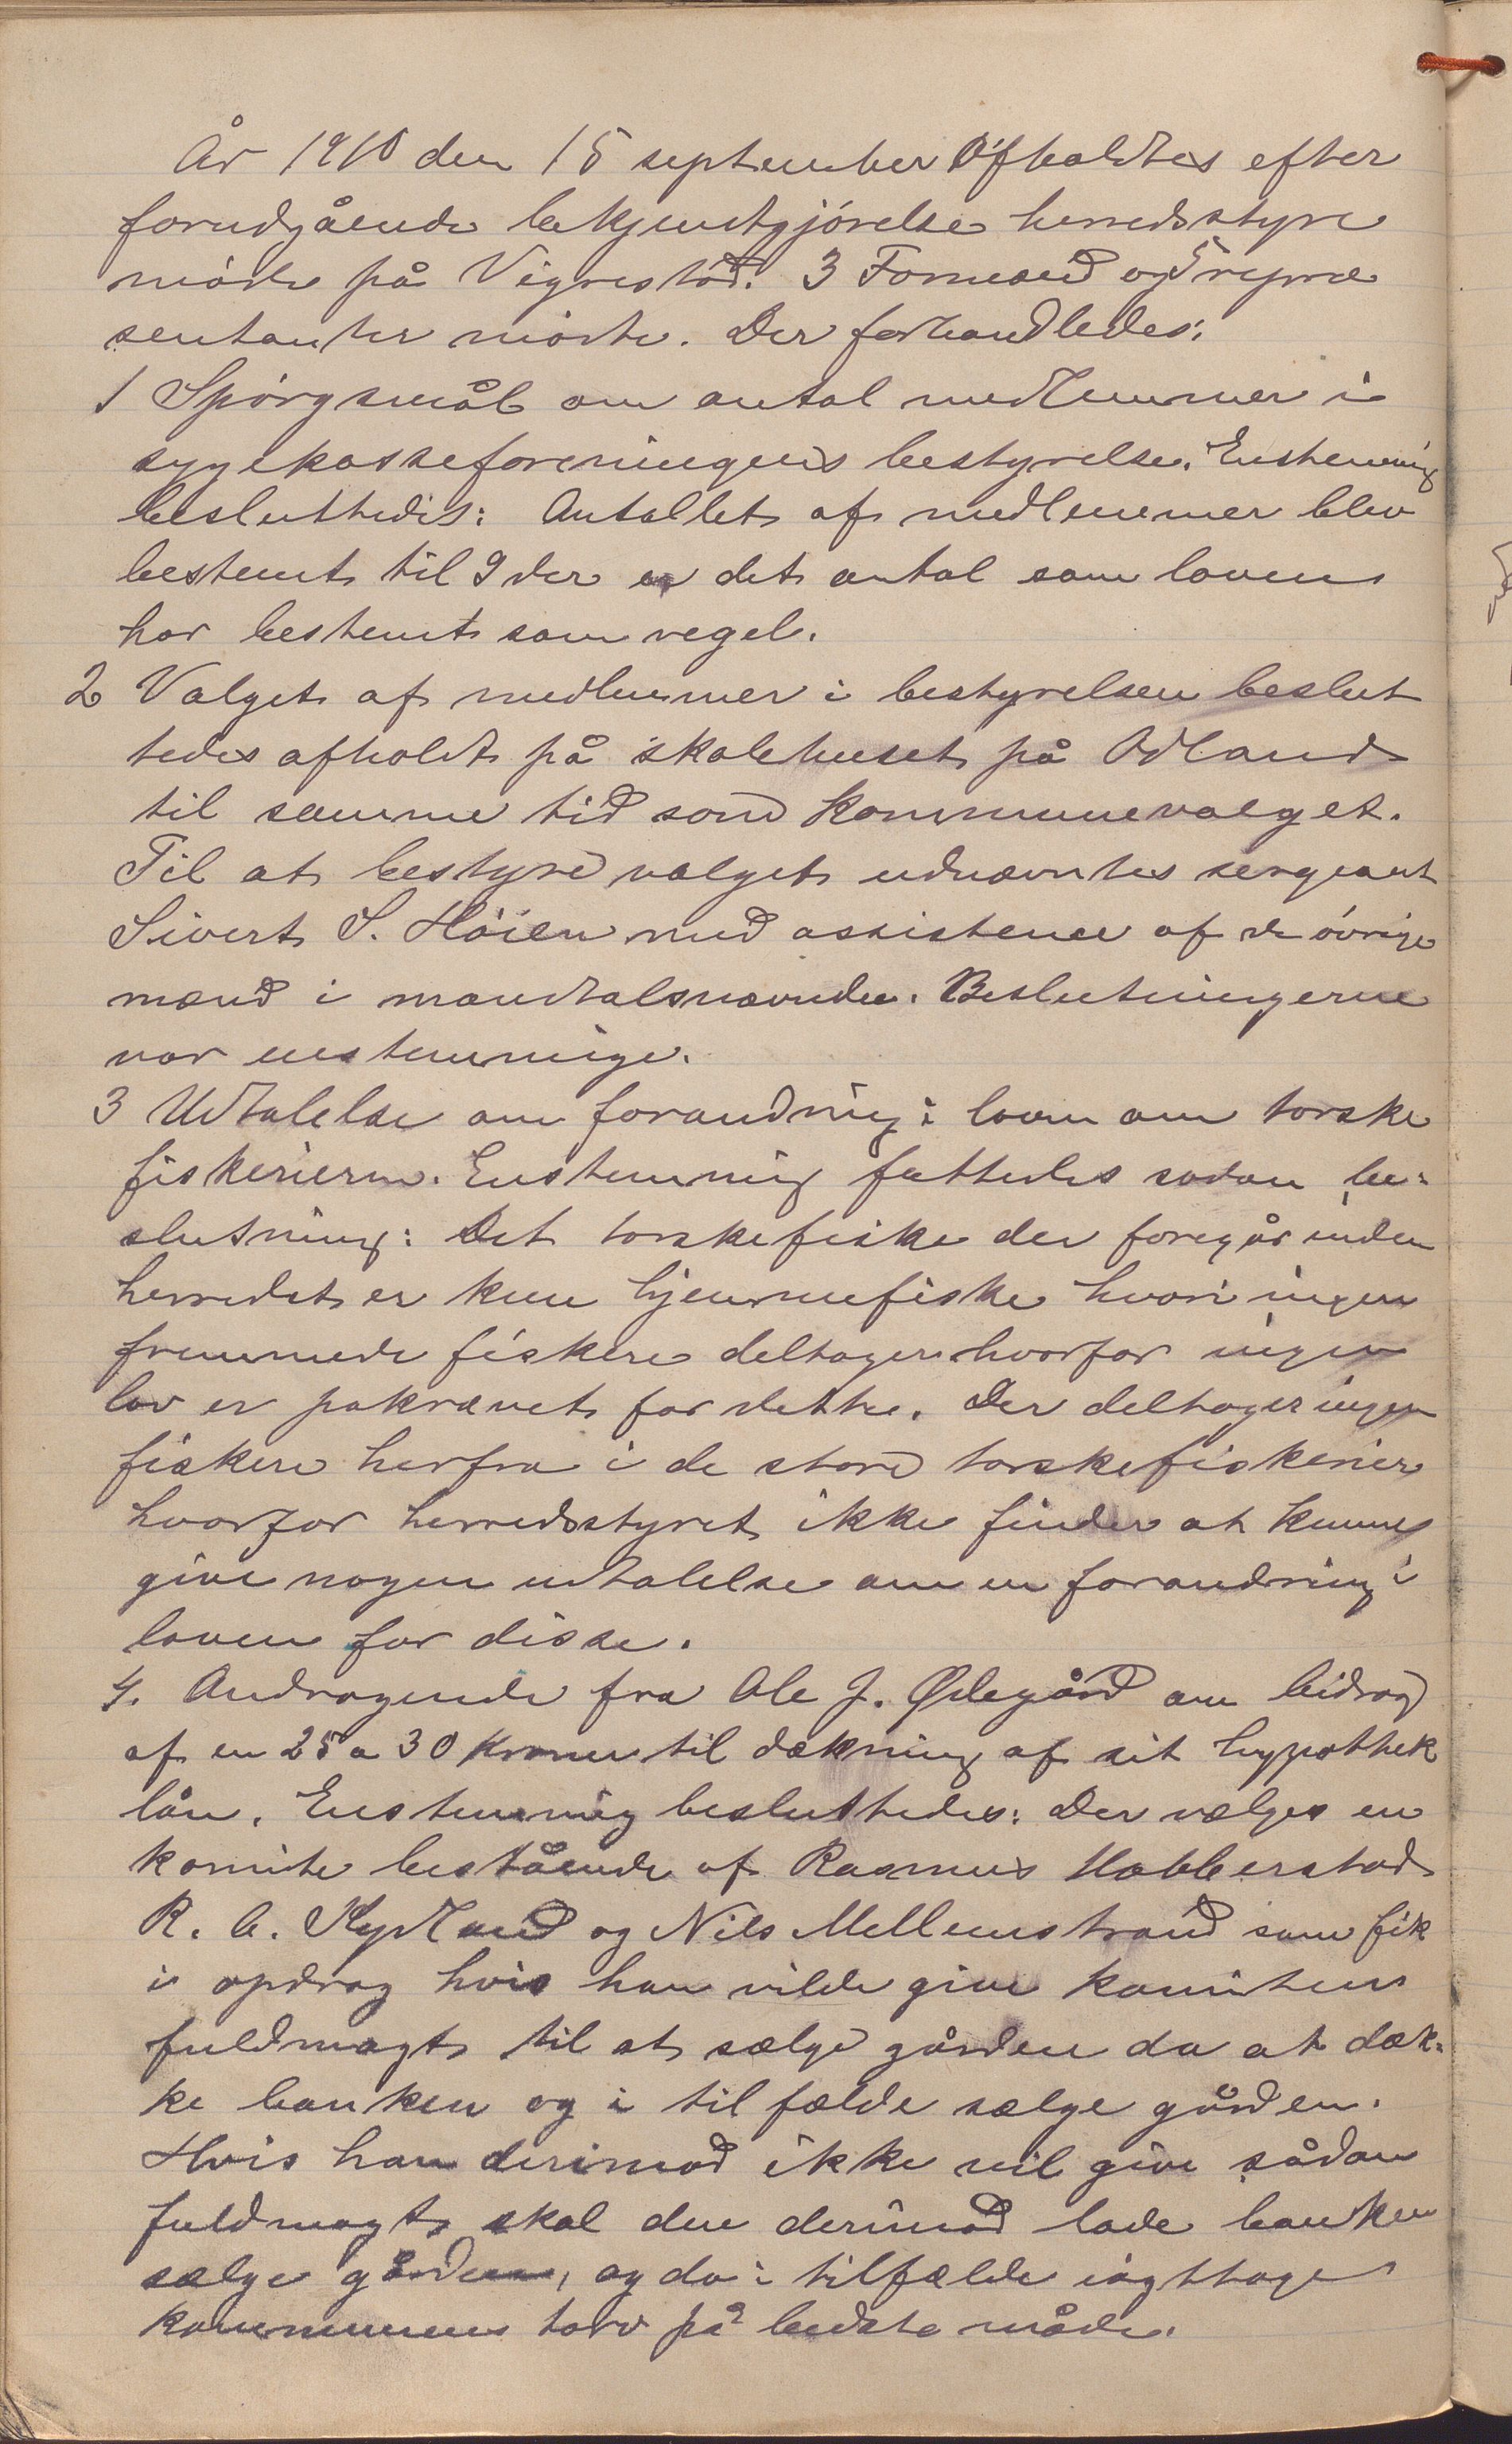 År 1910 den 15 september Afholdtes efter
forudgående bekjentgjörelse herredsstyre
möde på Vigrestad. 3 Formænd og 5 repræ
sentanter mödte. Der forhandledes:
1 Spörgsmål om antal medlemmer i
sygekasseforeningens bestyrelse. Enstemmig
besluttedes: Antallet af medlemmer blev
bestemt til 9 der er det antal som loven
har bestemt som regel.
2 Valget af medlemmer i bestyrelsen beslut
tedes afholdt på skolehuset på Ödland
til samme tid som kommunevalget.
Til at bestyre valget udnævntes sergeant
Sivert S. Höien med assistence af de övrige
mænd i mandtalsnævnden. Beslutningerne
var enstemmige.
3 Udtalelse om forandring i loven om torske
fiskerierne. Enstemmig fattedes sådan be-
slutning: Det torskefiske der foregår inden
herredet er kun hjemmefiske hvori ingen
fremmede fiskere deltager hvorfor ingen
lov er påkrævet for dette. Der deltager ingen
fiskere herfra i de store torskefiskerier
hvorfor herredsstyret ikke finder at kunne
give nogen udtalelse om en forandring i
loven for disse.
4. Andragende fra Ole J. Ødegård om bidrag
af en 25 a 30 kroner til dækning af sit hypothek
lån. Enstemmig besluttedes: Der vælges en
komite bestående af Rasmus Hobberstad
R. A. Kydland og Nils Mellemstrand som fik
i opdrag hvis han vilde give komiteen
fuldmagt til at sælge gården da at dæk-
ke banken og i tilfælde sælge gården.
Hvis han derimod ikke vil give sådan
fuldmagt skal den derimod lade banken
sælge gården, og da i tilfælde iagttage
kommunens tarv på bedste måde.